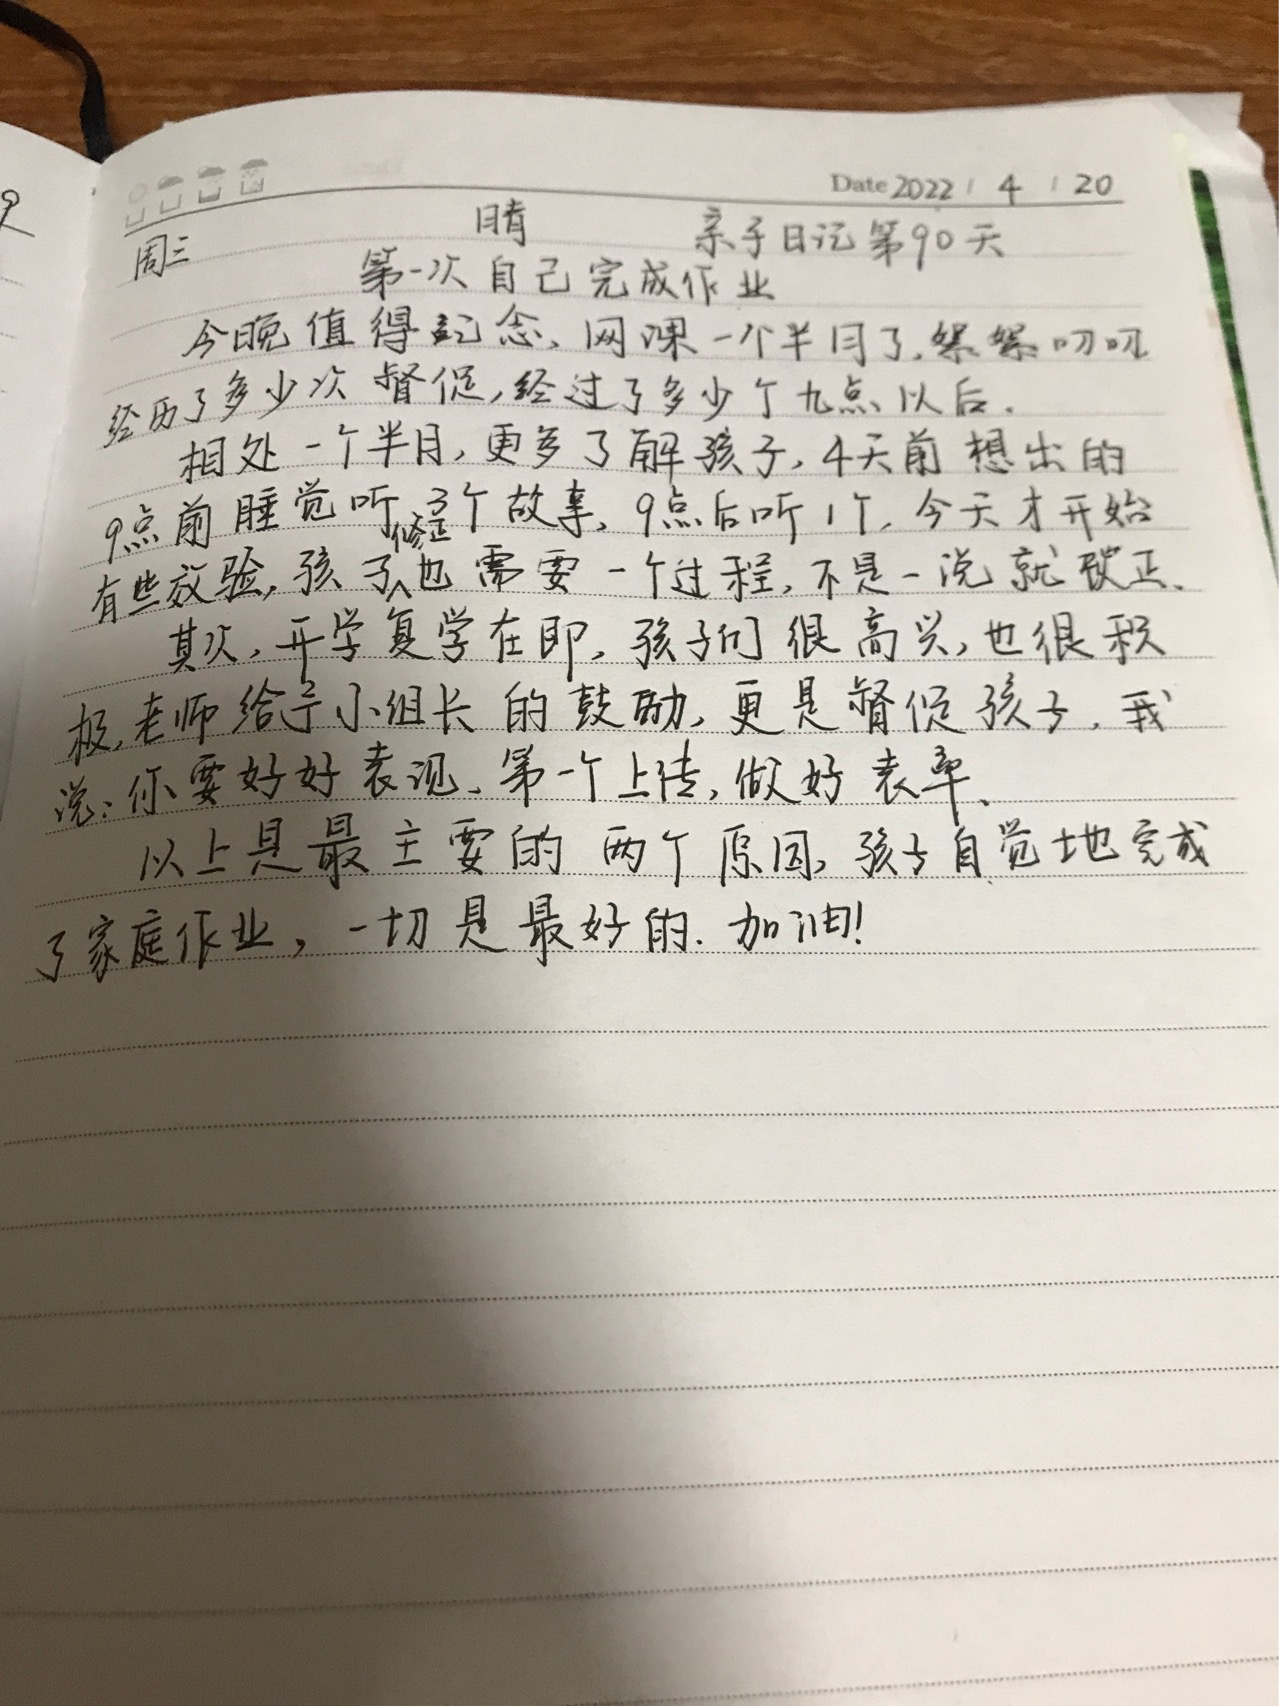 Date 2022 / 4 / 20
周三 晴 亲子日记第90天
第一次自己完成作业
今晚值得记念、网课一个半月了,絮絮叨叨
经历了多少次督促,经过了多少个九点以后.
相处一个半月,更多了解孩子,4天前想出的
9点前睡觉听3个故事,9点后听1个,今天才开始
有些效验,孩子修正也需要一个过程,不是一说就改正、
其次,开学复学在即,孩子们很高兴,也很积
极,老师给予小组长的鼓励,更是督促孩子,我
说:你要好好表现、第一个上传,做好表率、
以上是最主要的两个原因,孩子自觉地完成
了家庭作业,一切是最好的.加油!